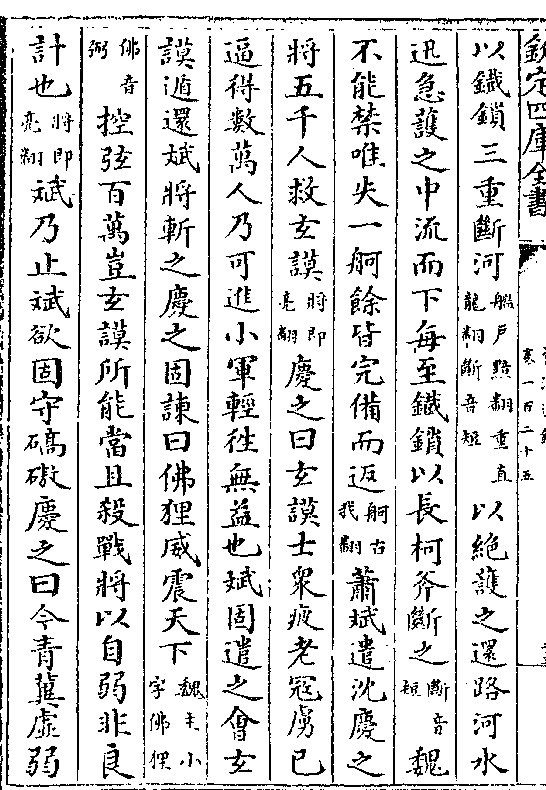 欽定四庫全書
卷一百二十五
以鐵鎖三重斷河艦戶黯翻重直龍翻斷音短以絕護之還路河水
迅急護之中流而下每至鐵鎖以長柯斧斷之斷音短魏
不能禁唯失一舸餘皆完備而返舸古我翻蕭斌遣沈慶之
將五千人救玄謨將即亮翻慶之曰玄謨士衆疲老寇虜已
逼得數萬人乃可進小軍輕徃無益也斌固遣之會玄
謨遁還斌將斬之慶之固諫曰佛狸威震天下魏主小字佛狸
佛音弼控弦百萬豈玄謨所能當且殺戰將以自弱非良
計也將即亮翻斌乃止斌欲固守碻磝慶之曰今青冀虛弱